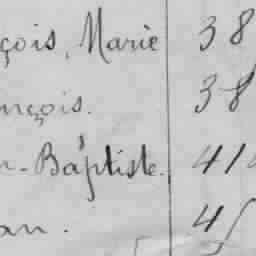 çois, Marie 38
nçois. 38
n-Baptiste. 41
an. 45